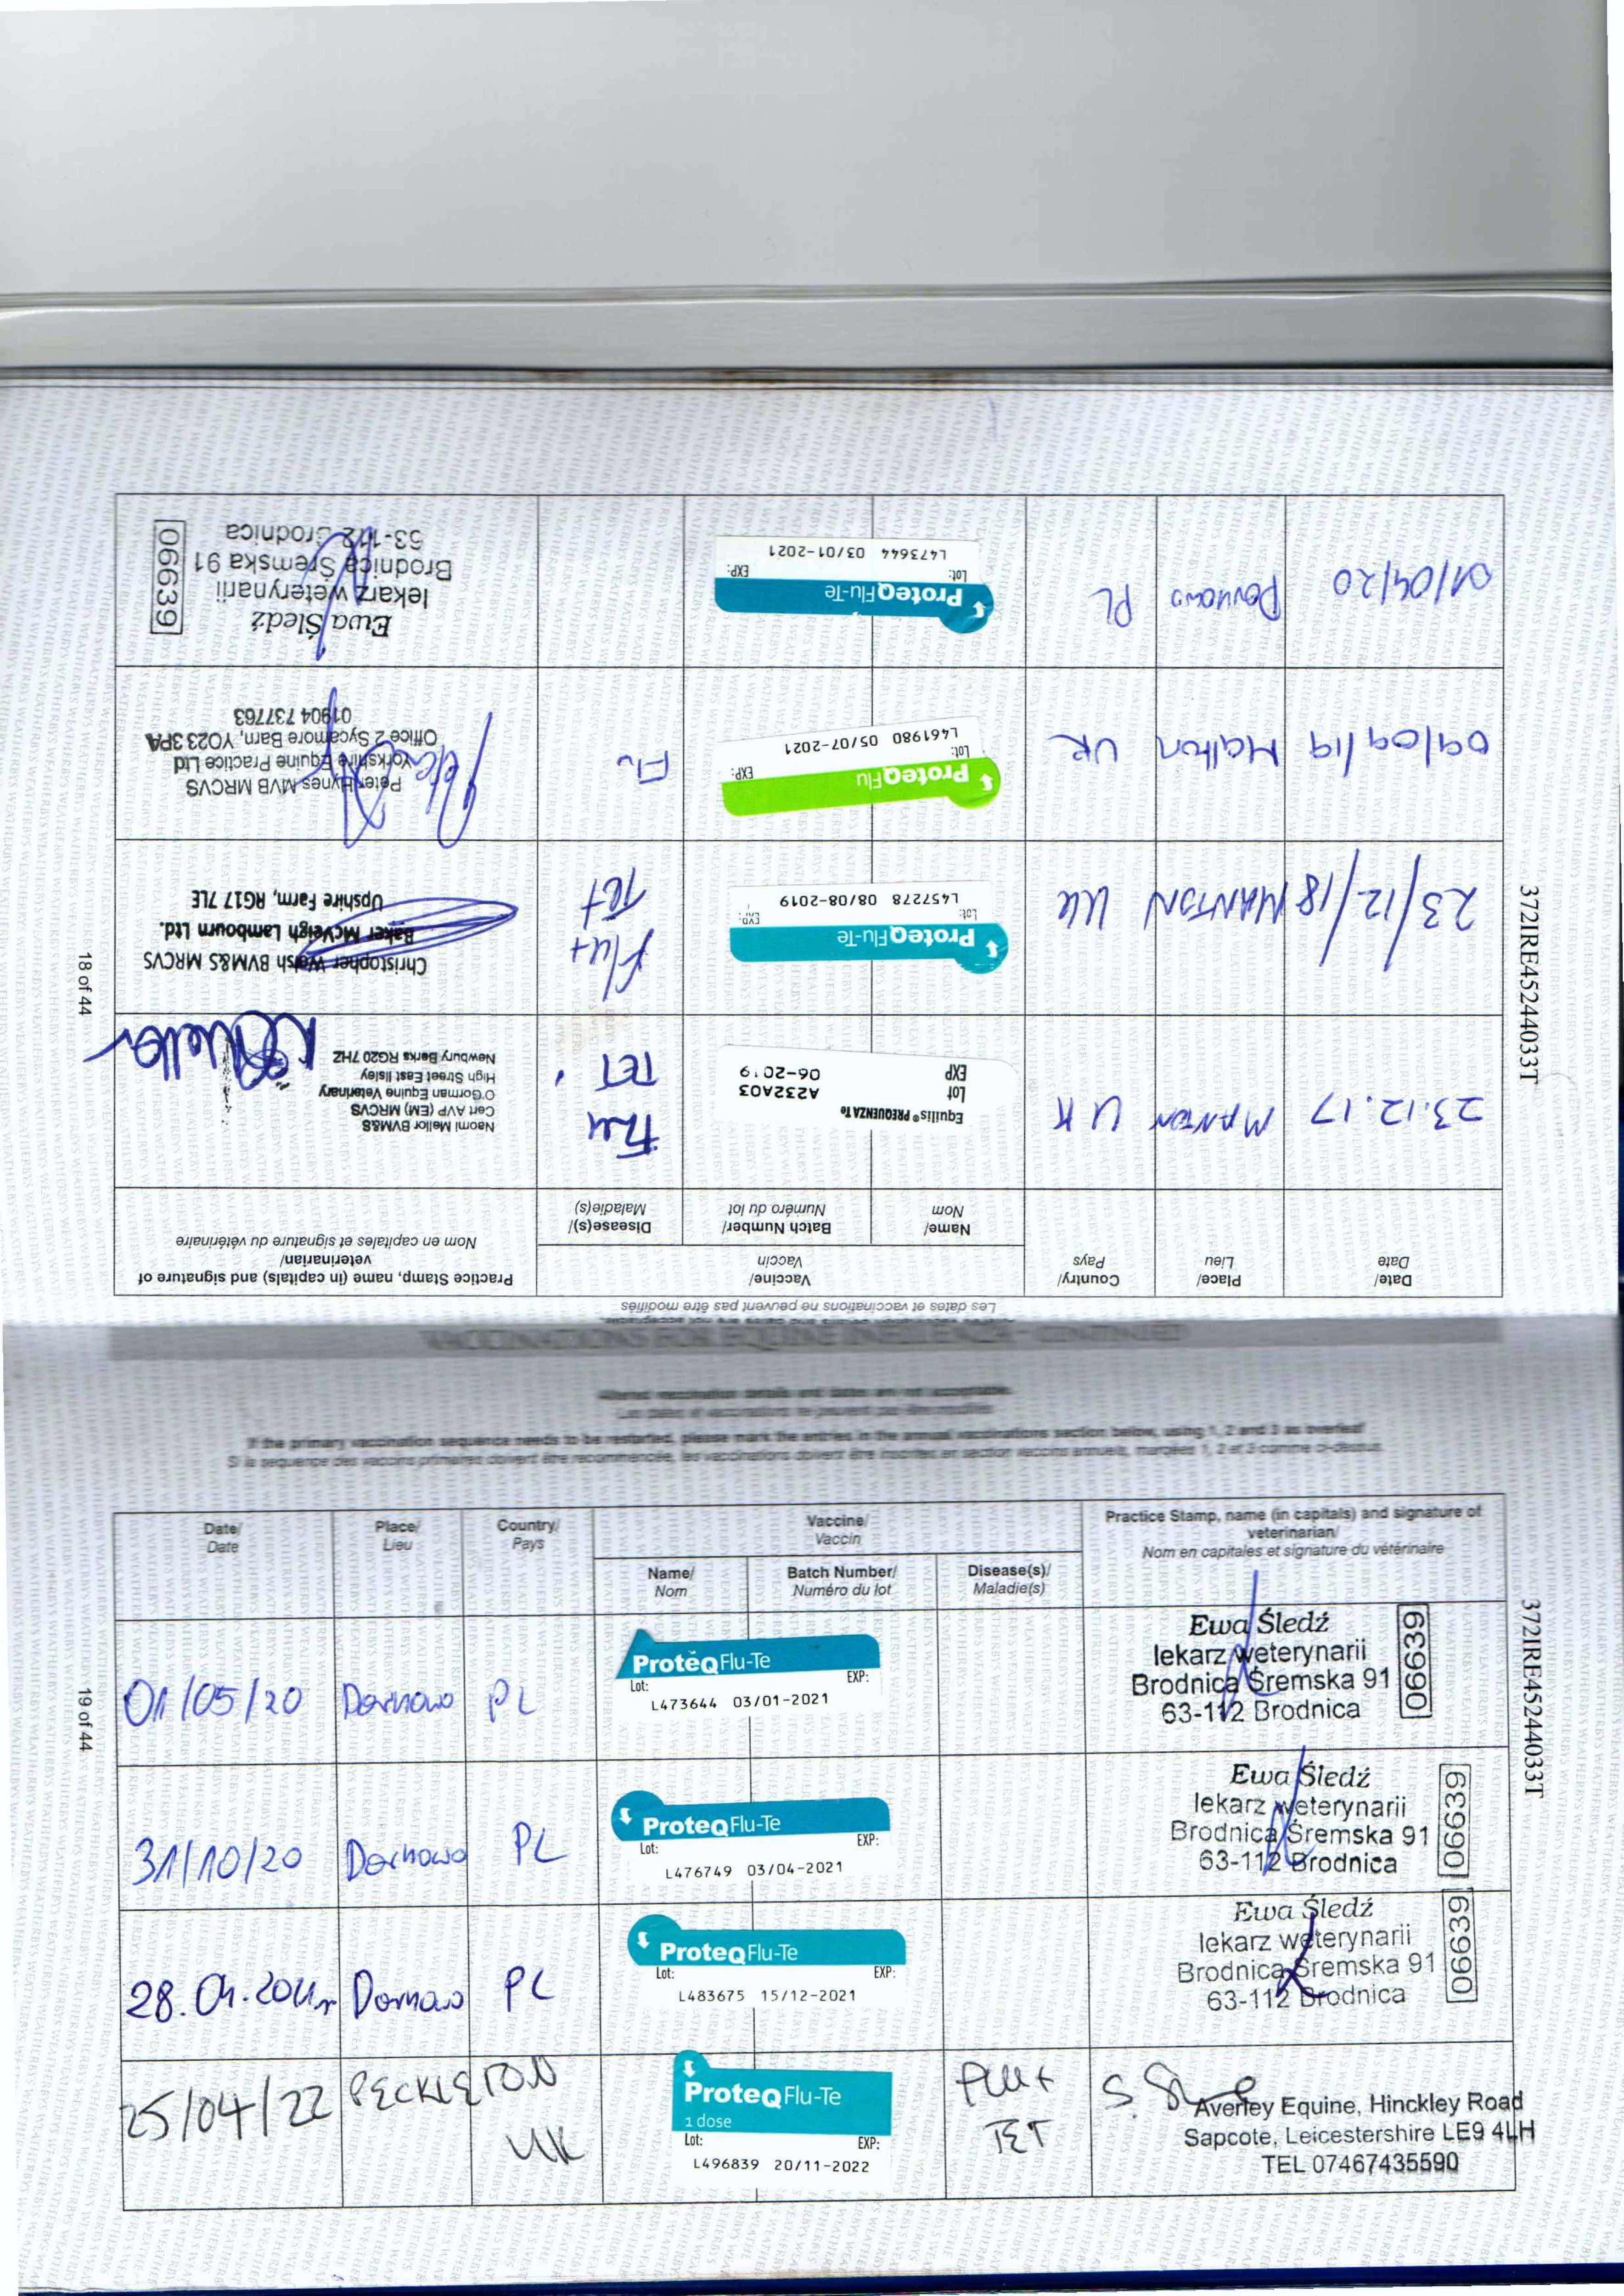 VACCINATIONS FOR EQUINE INFLUENZA - CONTINUED
Les dates et vaccinations ne peuvent pas être modifiés
Date/
Date
Place/
Lieu
Country/
Pays
Vaccine/
Vaccin
Name/
Nom
Batch Number/
Numéro du lot
Disease(s)/
Maladie(s)
Practice Stamp, name (in capitals) and signature of
veterinarian/
Nom en capitales et signature du vétérinaire
23.12.17 MANTON UK
Equilis® PREQUENZA Te
Lot A232A03
EXP 06-2019
Flu
TET
Naomi Mellor BVM&S
Cert AVP (EM) MRCVS
O'Gorman Equine Veterinary
High Street East Ilsley
Newbury Berks RG20 7HZ
23/12/18 MANTON UK
ProteqFlu-Te
Lot: EXP:
L457278 08/08-2019
Flu+
Tet
Christopher Walsh BVM&S MRCVS
Baker McVeigh Lambourn Ltd.
Upshire Farm, RG17 7LE
09/09/19 Malton UK
ProteqFlu
Lot: EXP:
L461980 05/07-2021
Flu
Peter Hynes MVB MRCVS
Yorkshire Equine Practice Ltd
Office 2 Sycamore Barn, YO23 3PA
01904 737763
01/04/20 PL
ProteqFlu-Te
Lot: EXP:
L473644 03/01-2021
Ewa Śledź
lekarz weterynarii
Brodnica Śremska 91
63-112 Brodnica
06639
372IRE45244033T
18 of 44
Altered vaccination details and dates are not acceptable.
Les dates et vaccinations ne peuvent pas être modifiés
If the primary vaccination sequence needs to be restarted, please mark the entries in the annual vaccinations section below, using 1, 2 and 3 as overleaf
Si la sequence des vaccins primaires doivent être recommencée, les vaccinations doivent être inscrites en section vaccins annuels, marquées 1, 2 et 3 comme ci-dessus.
Date/
Date
Place/
Lieu
Country/
Pays
Vaccine/
Vaccin
Name/
Nom
Batch Number/
Numéro du lot
Disease(s)/
Maladie(s)
Practice Stamp, name (in capitals) and signature of
veterinarian/
Nom en capitales et signature du vétérinaire
01/05/20 Darnowo PL
ProteqFlu-Te
Lot: EXP:
L473644 03/01-2021
Ewa Śledź
lekarz weterynarii
Brodnica Śremska 91
63-112 Brodnica
06639
31/10/20 Darnowo PL
ProteqFlu-Te
Lot: EXP:
L476749 03/04-2021
Ewa Śledź
lekarz weterynarii
Brodnica Śremska 91
63-112 Brodnica
06639
28. PL
ProteqFlu-Te
Lot: EXP:
L483675 15/12-2021
Ewa Śledź
lekarz weterynarii
Brodnica Śremska 91
63-112 Brodnica
06639
25/04/22 PECKLETON
UK
ProteqFlu-Te
1 dose
Lot: EXP:
L496839 20/11-2022
FLU+
TET
Averley Equine, Hinckley Road
Sapcote, Leicestershire LE9 4LH
TEL 07467435590
372IRE45244033T
19 of 44